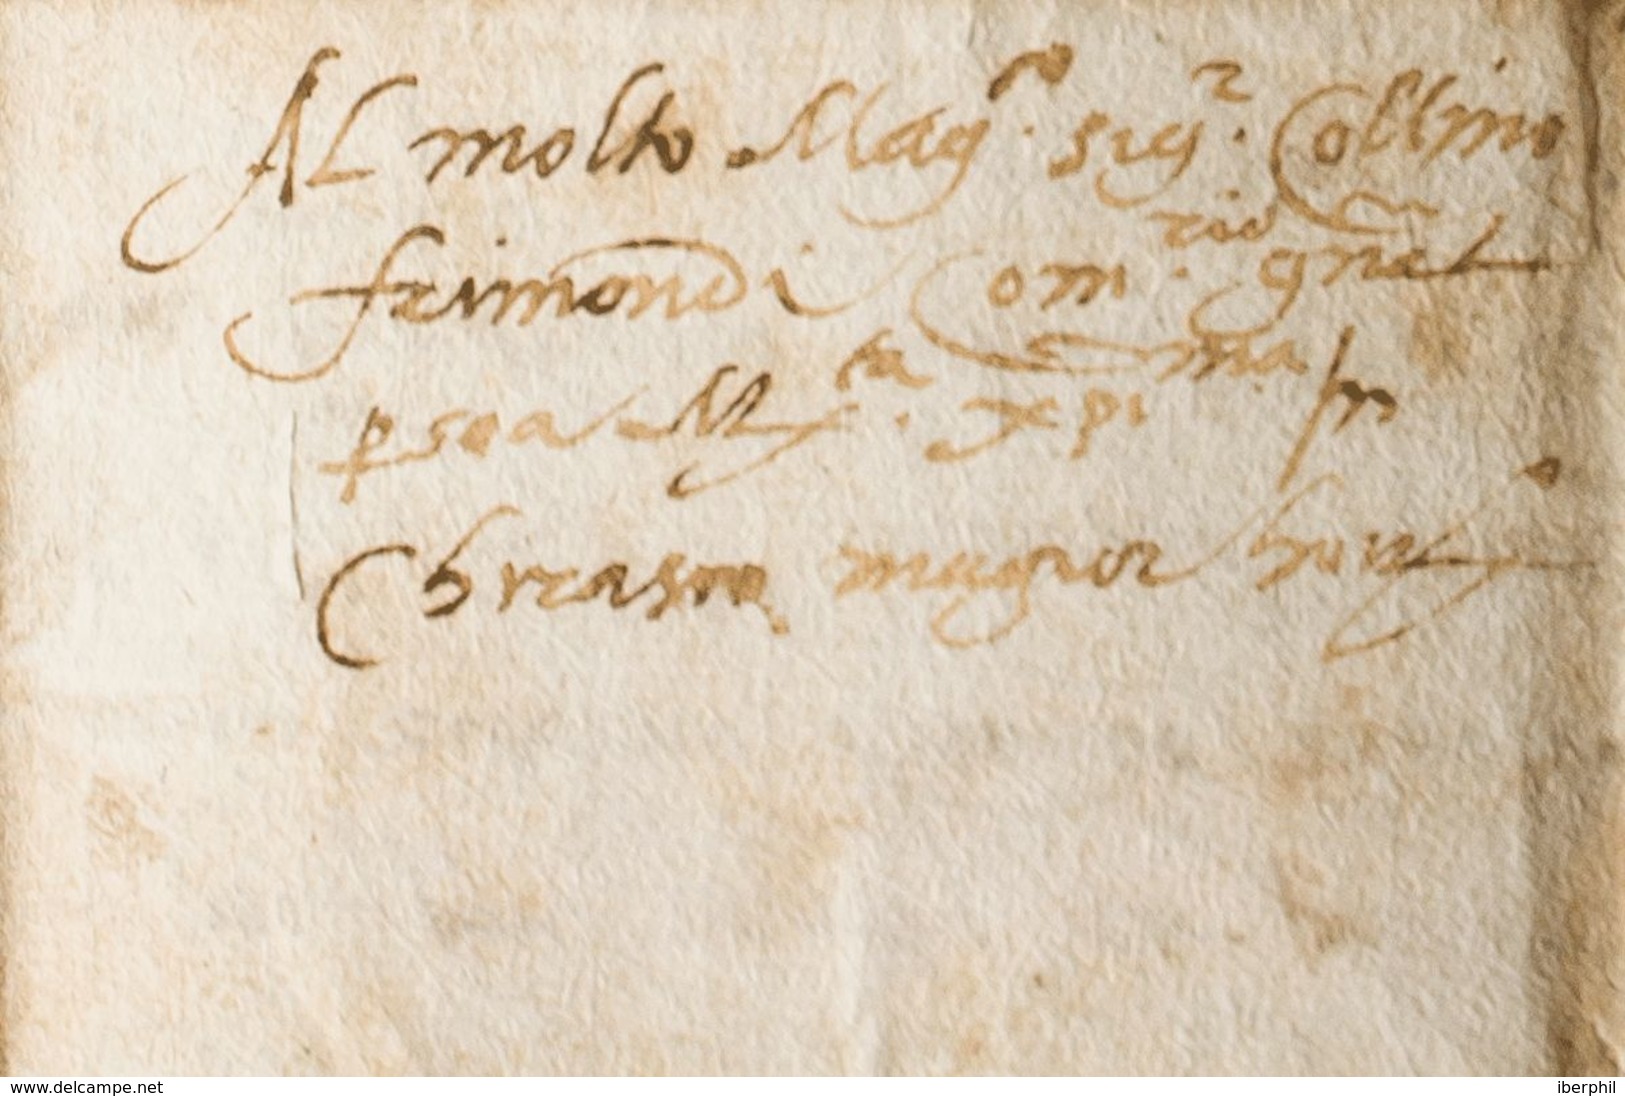 Al molto Mag.co sig.r Collino
frimondi Com.rio gn̄al
p sua M.ta xp̄i.ma in
mugior
www.delcampe.net
iberphil